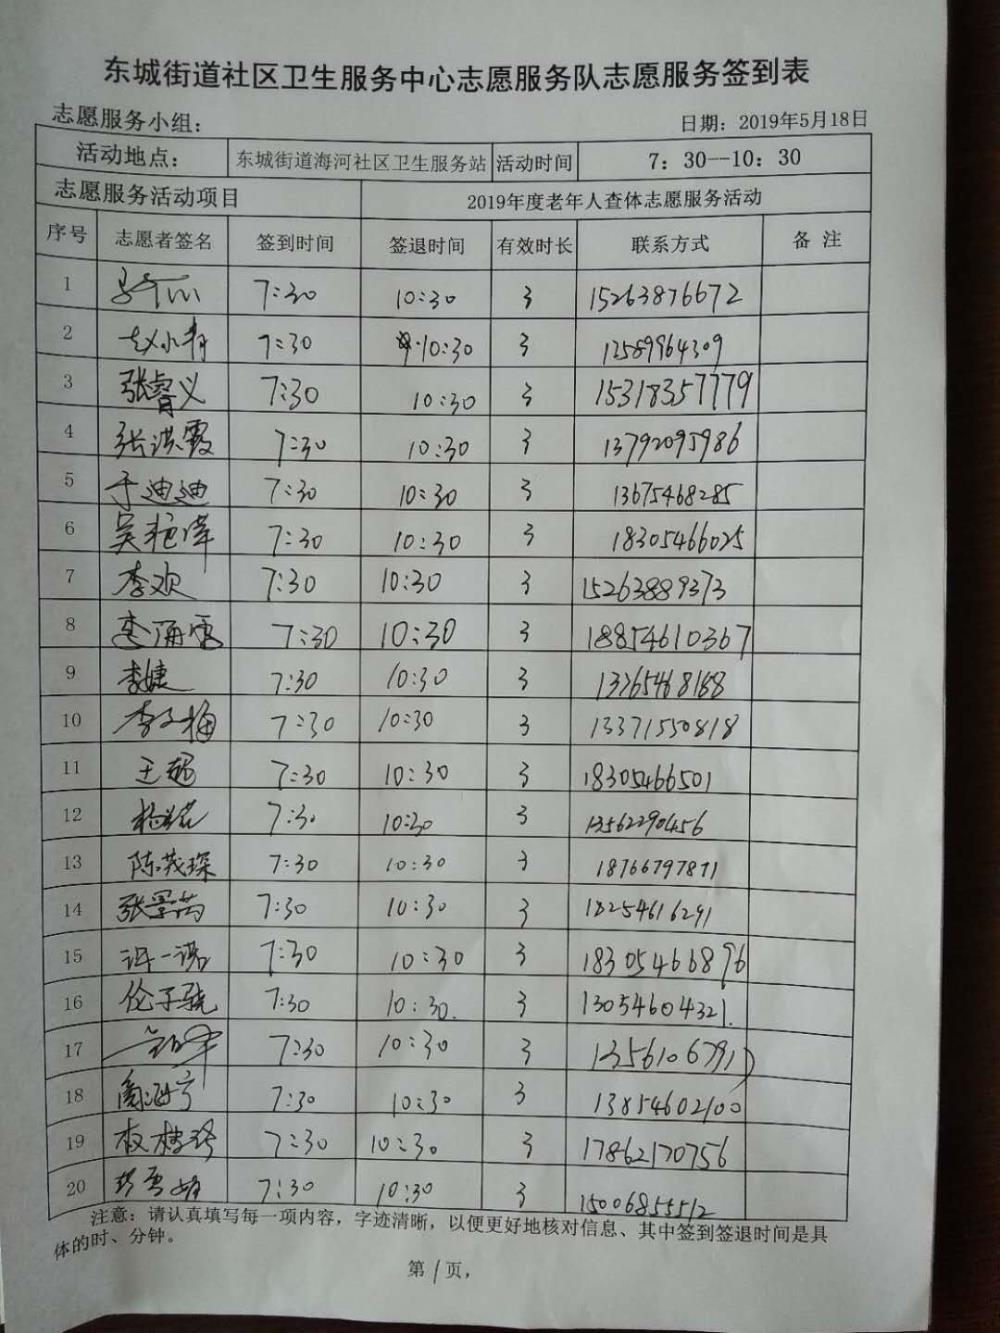 东城街道社区卫生服务中心志愿服务队志愿服务签到表
志愿服务小组： 日期：2019年5月18日
活动地点： 东城街道海河社区卫生服务站 活动时间 7：30--10：30
志愿服务活动项目 2019年度老年人查体志愿服务活动
序号 志愿者签名 签到时间 签退时间 有效时长 联系方式 备 注
1 7:30 10:30 3 15263876672
2 赵小青 7:30 10:30 3 12589964309
3 张睿义 7:30 10:30 3 15318357779
4 张洪霞 7:30 10:30 3 13792095986
5 于迪迪 7:30 10:30 3 13675468285
6 吴艳萍 7:30 10:30 3 18305466025
7 李欢 7:30 10:30 3 15263889373
8 李涌雪 7:30 10:30 3 18854610367
9 李婕 7:30 10:30 3
10 李子梅 7:30 10:30 3 13371550818
11 王超 7:30 10:30 3 18305466501
12 7:30 10:30 3 13562290456
13 陈茂琛 7:30 10:30 3 18766797871
14 张景芮 7:30 10:30 3 18254616291
15 许一诺 7:30 10:30 3 18305466896
16 伦子骁 7:30 10:30. 3 13054604321.
17 7:30 10:30 3 13561067917
18 7:30 10:30 3 13854602100
19 7:30 10:30 3 17862170756
20 7:30 10:30 3 15006855512
注意：请认真填写每一项内容，字迹清晰，以便更好地核对信息、其中签到签退时间是具
体的时、分钟。
第1页，